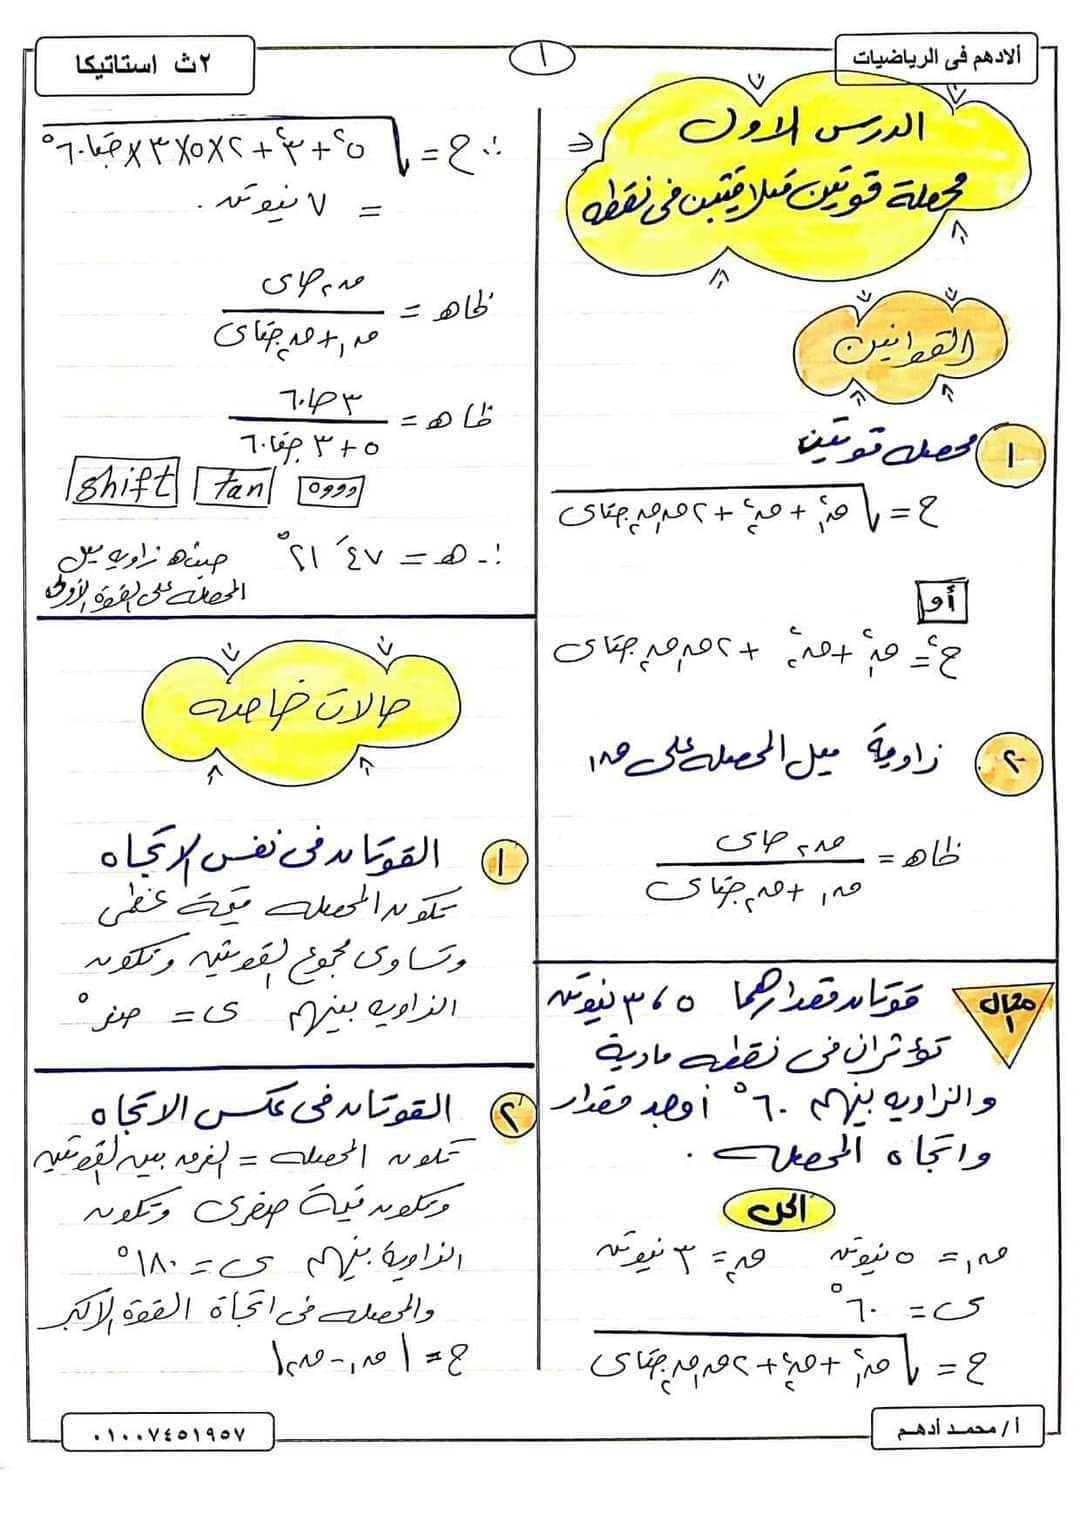 ألادهم فى الرياضيات
١
٢ث استاتيكا
الدرس الاول
محصلة قوتين متلاقيتين فى نقطه
القوانين
١ محصله قوتين
ح = √ ق١² + ق٢² + ٢ ق١ ق٢ جتاى
أو
ح² = ق١² + ق٢² + ٢ ق١ ق٢ جتاى
٢ زاوية ميل المحصله على ق١
ظاه = ق٢ جاى / ق١ + ق٢ جتاى
مثال ١ قوتان مقدارهما ٥ ، ٣ نيوتن
تؤثران فى نقطه مادية
والزاويه بينهم ٦٠° أوجد مقدار
واتجاه المحصله .
الحل
ق١ = ٥ نيوتن ق٢ = ٣ نيوتن
ى = ٦٠°
ح = √ ق١² + ق٢² + ٢ ق١ ق٢ جتاى
∴ ح = √ ٥² + ٣² + ٢×٥×٣× جتا٦٠°
= ٧ نيوتن .
ظاه = ق٢ جاى / ق١ + ق٢ جتاى
ظاه = ٣ جا٦٠ / ٥ + ٣ جتا٦٠
shift tan ووو٥
∴ ه = ٤٧َ ٢١° حيث ه زاويه ميل
المحصله على القوة الأولى
حالات خاصه
١ القوتان فى نفس الاتجاه
تكون المحصله قيمة عظمى
وتساوى مجموع القوتين وتكون
الزاويه بينهم ى = صفر°
٢ القوتان فى عكس الاتجاه
تكون المحصله = الفرق بين القوتين
وتكون قيمة صغرى وتكون
الزاوية بينهم ى = ١٨٠°
والمحصله فى اتجاة القوة الاكبر
ح = | ق١ - ق٢ |
أ/ محمـد أدهـم
٠١٠٠٧٤٥١٩٥٧